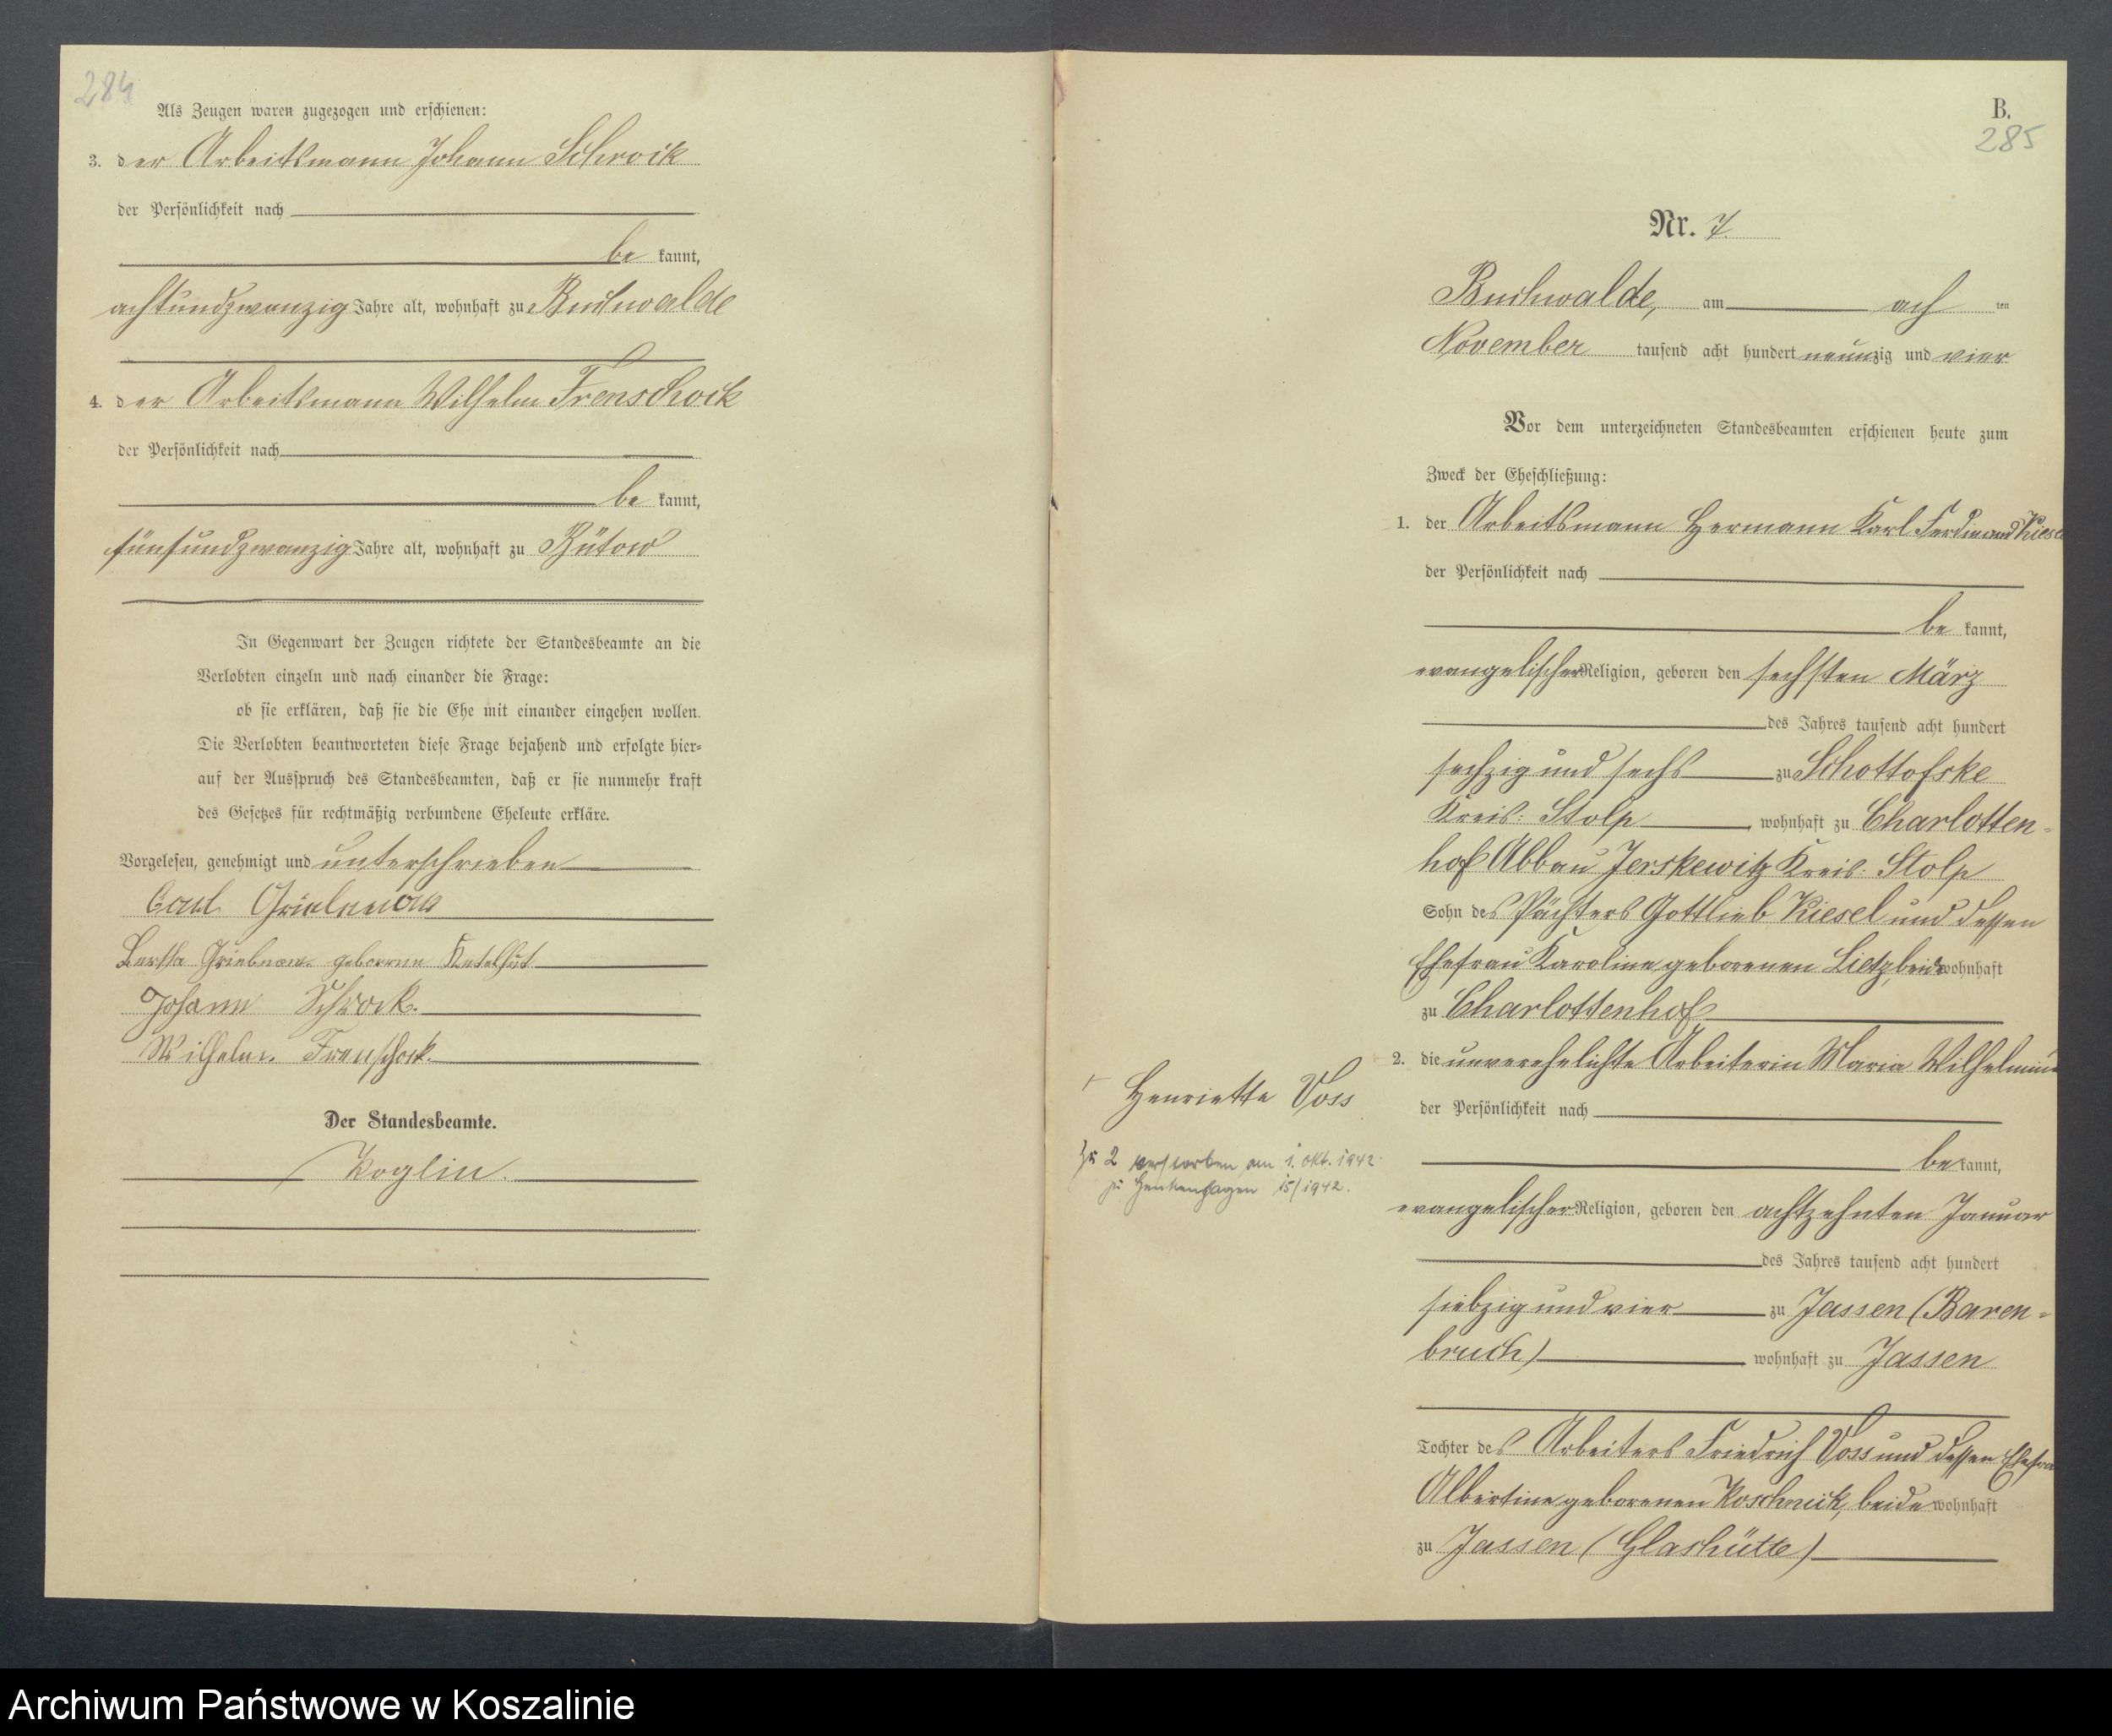 284
Als Zeugen waren zugezogen und erschienen:
3. der Arbeitsmann Johann Schrock
der Persönlichkeit nach
be kannt,
achtundzwanzig Jahre alt, wohnhaft zu Buchwalde
4. der Arbeitsmann Wilhelm Frenschock
der Persönlichkeit nach
be kannt,
fünfundzwanzig Jahre alt, wohnhaft zu Bütow
In Gegenwart der Zeugen richtete der Standesbeamte an die
Verlobten einzeln und nach einander die Frage:
ob sie erklären, daß sie die Ehe mit einander eingehen wollen.
Die Verlobten beantworteten diese Frage bejahend und erfolgte hier-
auf der Ausspruch des Standesbeamten, daß er sie nunmehr kraft
des Gesetzes für rechtmäßig verbundene Eheleute erkläre.
Vorgelesen, genehmigt und unterschrieben
Carl
geborene Ketelhut
Johann Schrock.
Wilhelm Frenschock.
Der Standesbeamte.
Koglin.
B.
285
Nr. 7.
Buchwalde, am ach ten
November tausend acht hundert neunzig und vier
Vor dem unterzeichneten Standesbeamten erschienen heute zum
Zweck der Eheschließung:
1. der Arbeitsmann Hermann Karl Ferdinand Kiesel
der Persönlichkeit nach
be kannt,
evangelischer Religion, geboren den sechsten März
des Jahres tausend acht hundert
sechzig und sechs zu Schottofske
Kreis: Stolp wohnhaft zu Charlotten-
hof Abbau Jerskewitz Kreis: Stolp
Sohn des Pächters Gottlieb Kiesel und dessen
Ehefrau Karoline geborenen Lietz, beide wohnhaft
zu Charlottenhof
2. die unverehelichte Arbeiterin Maria Wilhelmine
⊢ Henriette Voss
der Persönlichkeit nach
be kannt,
Zu 2 verstorben am 1. Okt. 1942
zu Henkenhagen 15/1942.
evangelischer Religion, geboren den achtzehnten Januar
des Jahres tausend acht hundert
siebzig und vier zu Jassen (Baren-
bruch) wohnhaft zu Jassen
Tochter des Arbeiters Friedrich Voss und dessen Ehefrau
Albertine geborenen Koschnick, beide wohnhaft
zu Jassen (Glashütte)
Archiwum Państwowe w Koszalinie